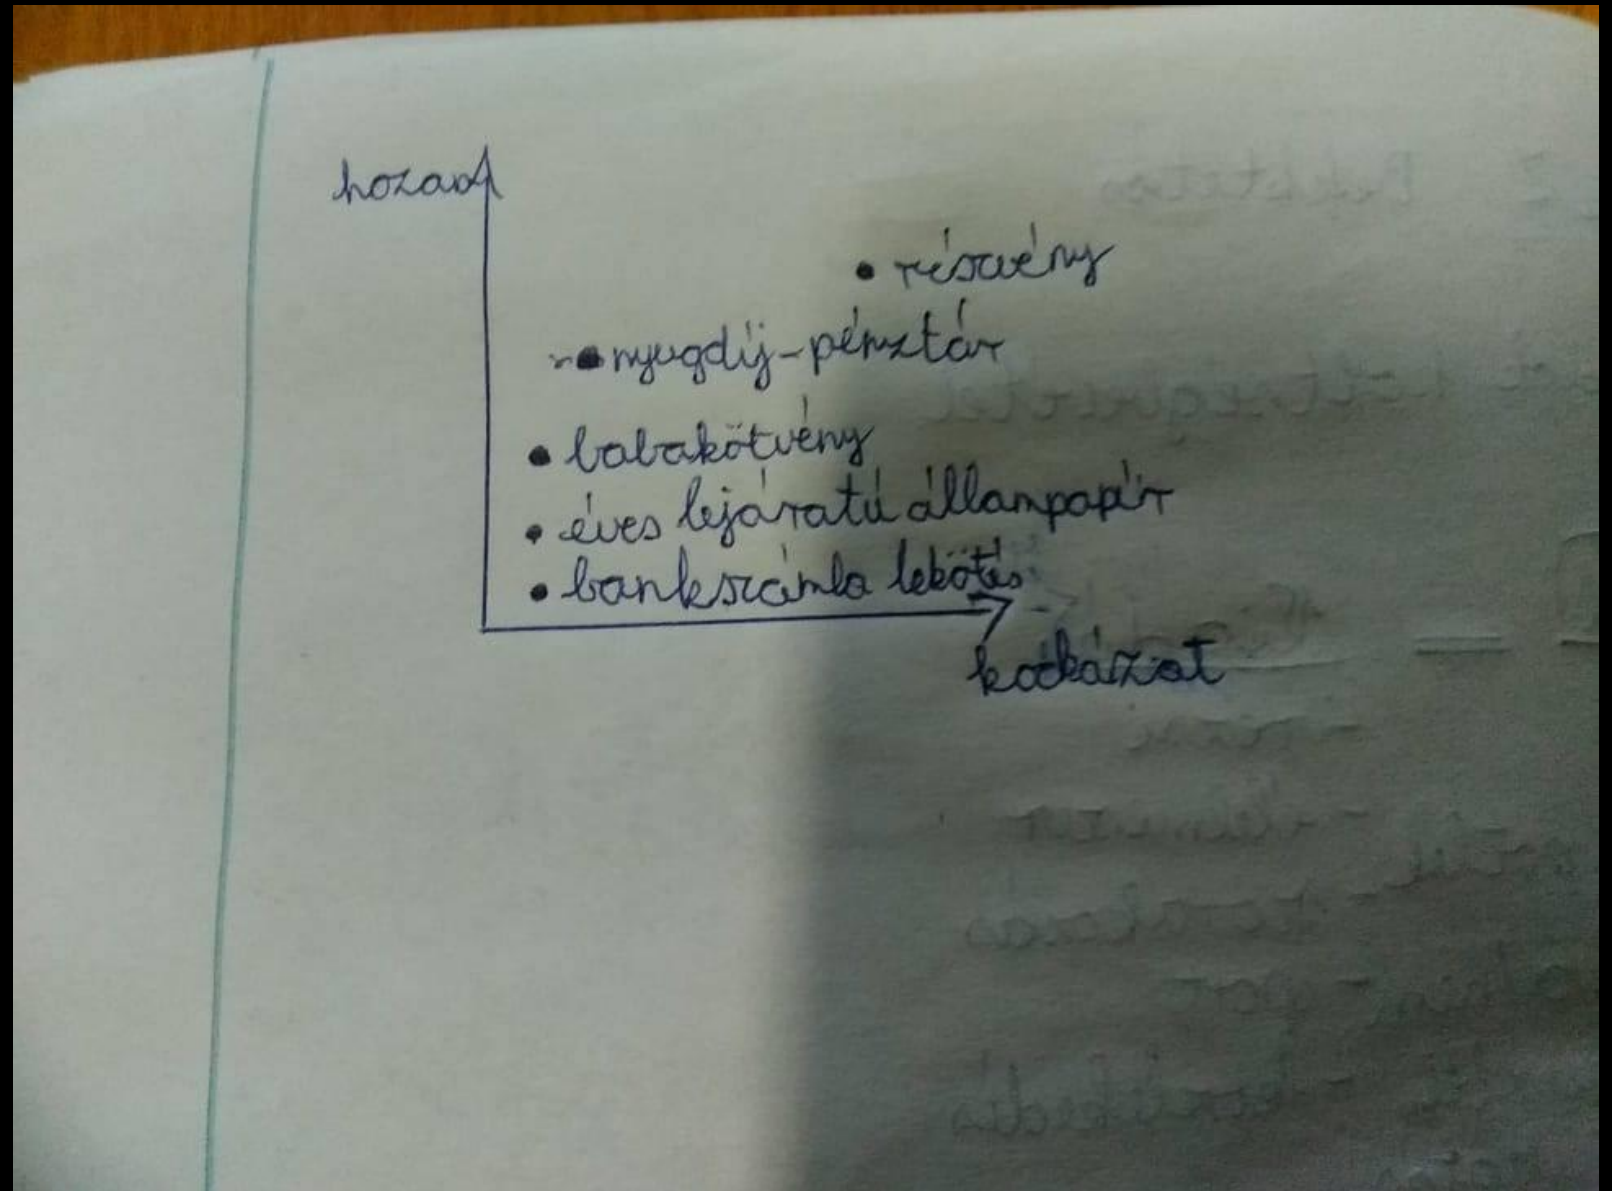 hozam
• részvény
• nyugdíj-pénztár
• babakötvény
• éves lejáratú állampapír
• bankszámla lekötés
kockázat